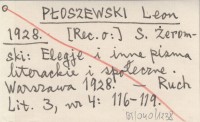 PŁOSZEWSKI Leon
1928. [Rec. o:] S. Żerom-
ski: Elegje i inne pisma
literackie i społeczne.
Warszawa 1928. — Ruch
Lit. 3, nr 4: 116-119.